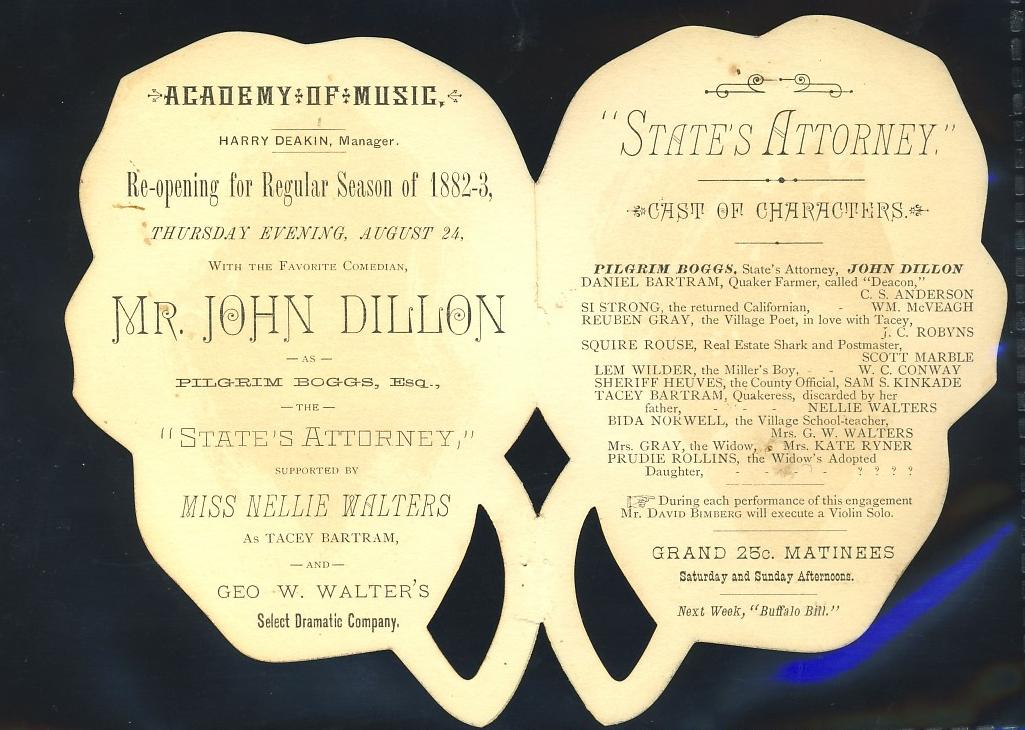 ACADEMY OF MUSIC,
HARRY DEAKIN, Manager.
Re-opening for Regular Season of 1882-3,
THURSDAY EVENING, AUGUST 24,
WITH THE FAVORITE COMEDIAN,
MR. JOHN DILLON
— AS —
PILGRIM BOGGS, Esq.,
— THE —
"STATE'S ATTORNEY,"
SUPPORTED BY
MISS NELLIE WALTERS
As TACEY BARTRAM,
— AND —
GEO W. WALTER'S
Select Dramatic Company.
"STATE'S ATTORNEY."
CAST OF CHARACTERS.
PILGRIM BOGGS, State's Attorney, JOHN DILLON
DANIEL BARTRAM, Quaker Farmer, called "Deacon,"
C. S. ANDERSON
SI STRONG, the returned Californian, - WM. McVEAGH
REUBEN GRAY, the Village Poet, in love with Tacey,
J. C. ROBYNS
SQUIRE ROUSE, Real Estate Shark and Postmaster,
SCOTT MARBLE
LEM WILDER, the Miller's Boy, - - W. C. CONWAY
SHERIFF HEUVES, the County Official, SAM S. KINKADE
TACEY BARTRAM, Quakeress, discarded by her
father, - - - - NELLIE WALTERS
BIDA NORWELL, the Village School-teacher,
Mrs. G. W. WALTERS
Mrs. GRAY, the Widow, - Mrs. KATE RYNER
PRUDIE ROLLINS, the Widow's Adopted
Daughter, - - - - - ? ? ? ?
☞ During each performance of this engagement
Mr. DAVID BIMBERG will execute a Violin Solo.
GRAND 25c. MATINEES
Saturday and Sunday Afternoons.
Next Week, "Buffalo Bill."